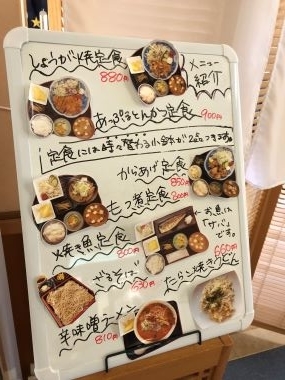 しょうが焼定食
880円
メニュー
紹介
あっぷるとんかつ定食
900円
定食には時々変わる小鉢が2品つきます。
からあげ定食
850円
もつ煮定食
800円
←お魚は
「サバ」
です。
焼き魚定食
800円
ざるそば
530円
たらこ焼きうどん
660円
辛味噌ラーメン
810円